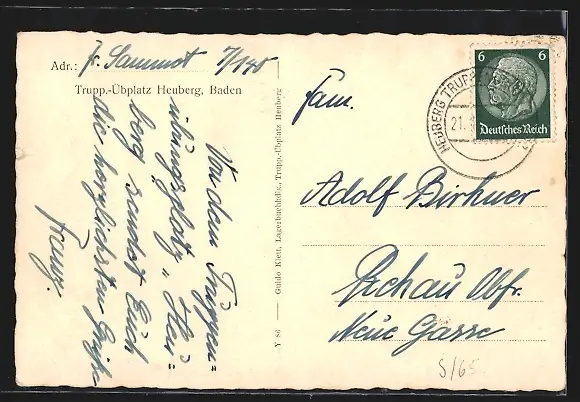 Adr.: Fr. Sammet 7/140
Trupp.-Übplatz Heuberg, Baden
Von dem Truppen=
übungsplatz „Heu=
berg sendet Euch
die herzlichsten Grüße
Franz.
Y 86 — Guido Klett, Lagerbuchhdlg., Trupp.-Übplatz Heuberg
6 6
Deutsches Reich
HEUBERG TRUP
21.
Fam.
Adolf Birkner
Pechau Abf.
Neue Gasse
S/65